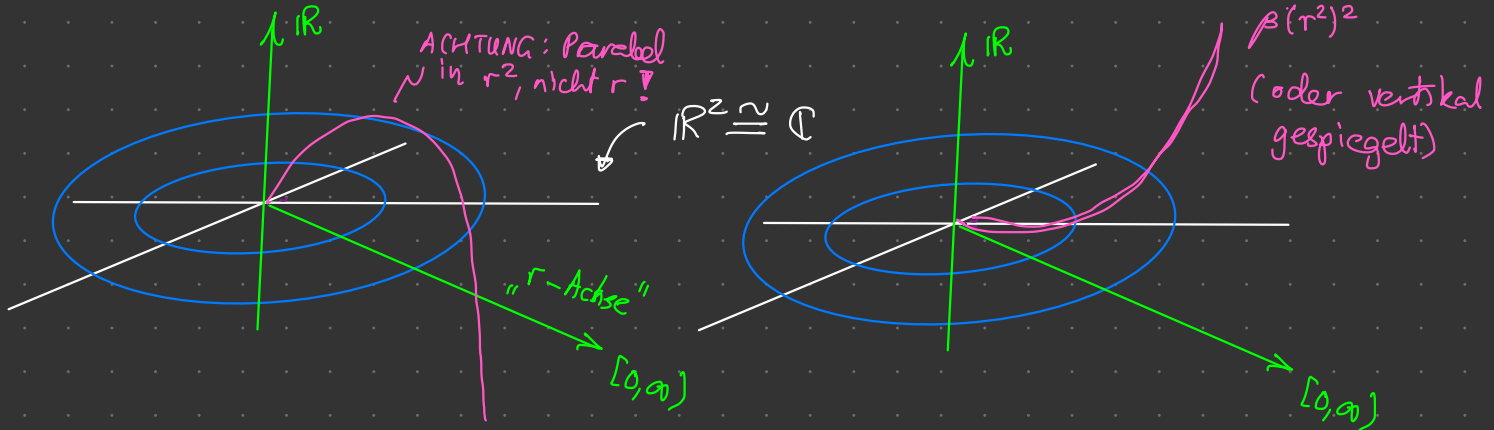 ℝ
ACHTUNG: Parabel
in r², nicht r!
ℝ² ≅ ℂ
"r-Achse"
[0,∞)
ℝ
β(r²)²
(oder vertikal
gespiegelt)
[0,∞)